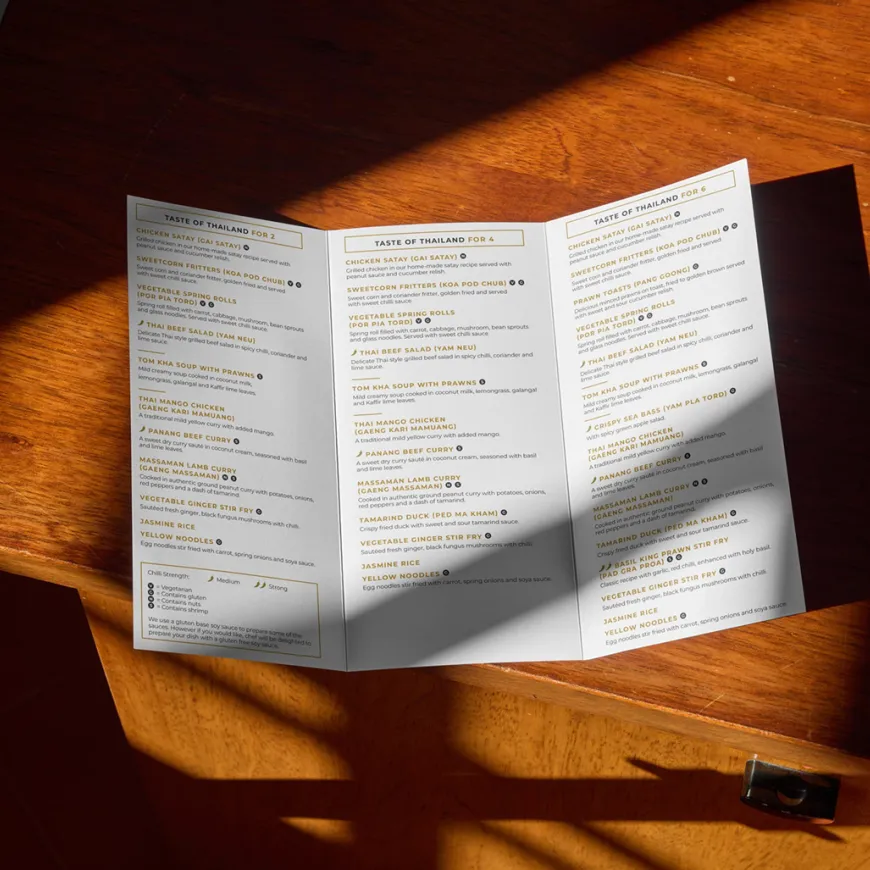 TASTE OF THAILAND FOR 2
CHICKEN SATAY (GAI SATAY) N
Grilled chicken in our home-made satay recipe served with
peanut sauce and cucumber relish.
SWEETCORN FRITTERS (KOA POD CHUB) V G
Sweet corn and coriander fritter, golden fried and served
with sweet chilli sauce.
VEGETABLE SPRING ROLLS
(POR PIA TORD) V G
Spring roll filled with carrot, cabbage, mushroom, bean sprouts
and glass noodles. Served with sweet chilli sauce.
THAI BEEF SALAD (YAM NEU)
Delicate Thai style grilled beef salad in spicy chilli, coriander and
lime sauce.
TOM KHA SOUP WITH PRAWNS S
Mild creamy soup cooked in coconut milk,
lemongrass, galangal and Kaffir lime leaves.
THAI MANGO CHICKEN
(GAENG KARI MAMUANG)
A traditional mild yellow curry with added mango.
PANANG BEEF CURRY S
A sweet dry curry sauté in coconut cream, seasoned with basil
and lime leaves.
MASSAMAN LAMB CURRY
(GAENG MASSAMAN) N S
Cooked in authentic ground peanut curry with potatoes, onions,
red peppers and a dash of tamarind.
VEGETABLE GINGER STIR FRY G
Sautéed fresh ginger, black fungus mushrooms with chilli.
JASMINE RICE
YELLOW NOODLES G
Egg noodles stir fried with carrot, spring onions and soya sauce.
Chilli Strength: Medium Strong
V = Vegetarian
G = Contains gluten
N = Contains nuts
S = Contains shrimp
We use a gluten base soy sauce to prepare some of the
sauces. However if you would like, chef will be delighted to
prepare your dish with a gluten free soy sauce.
TASTE OF THAILAND FOR 4
CHICKEN SATAY (GAI SATAY) N
Grilled chicken in our home-made satay recipe served with
peanut sauce and cucumber relish.
SWEETCORN FRITTERS (KOA POD CHUB) V G
Sweet corn and coriander fritter, golden fried and served
with sweet chilli sauce.
VEGETABLE SPRING ROLLS
(POR PIA TORD) V G
Spring roll filled with carrot, cabbage, mushroom, bean sprouts
and glass noodles. Served with sweet chilli sauce.
THAI BEEF SALAD (YAM NEU)
Delicate Thai style grilled beef salad in spicy chilli, coriander and
lime sauce.
TOM KHA SOUP WITH PRAWNS S
Mild creamy soup cooked in coconut milk, lemongrass, galangal
and Kaffir lime leaves.
THAI MANGO CHICKEN
(GAENG KARI MAMUANG)
A traditional mild yellow curry with added mango.
PANANG BEEF CURRY S
A sweet dry curry sauté in coconut cream, seasoned with basil
and lime leaves.
MASSAMAN LAMB CURRY
(GAENG MASSAMAN) N S
Cooked in authentic ground peanut curry with potatoes, onions,
red peppers and a dash of tamarind.
TAMARIND DUCK (PED MA KHAM) G
Crispy fried duck with sweet and sour tamarind sauce.
VEGETABLE GINGER STIR FRY G
Sautéed fresh ginger, black fungus mushrooms with chilli.
JASMINE RICE
YELLOW NOODLES G
Egg noodles stir fried with carrot, spring onions and soya sauce.
TASTE OF THAILAND FOR 6
CHICKEN SATAY (GAI SATAY) N
Grilled chicken in our home-made satay recipe served with
peanut sauce and cucumber relish.
SWEETCORN FRITTERS (KOA POD CHUB) V G
Sweet corn and coriander fritter, golden fried and served
with sweet chilli sauce.
PRAWN TOASTS (PANG GOONG) G
Delicious minced prawns on toast, fried to golden brown served
with sweet and sour cucumber relish.
VEGETABLE SPRING ROLLS
(POR PIA TORD) V G
Spring roll filled with carrot, cabbage, mushroom, bean sprouts
and glass noodles. Served with sweet chilli sauce.
THAI BEEF SALAD (YAM NEU)
Delicate Thai style grilled beef salad in spicy chilli, coriander and
lime sauce.
TOM KHA SOUP WITH PRAWNS S
Mild creamy soup cooked in coconut milk, lemongrass, galangal
and Kaffir lime leaves.
CRISPY SEA BASS (YAM PLA TORD) G
With spicy green apple salad.
THAI MANGO CHICKEN
(GAENG KARI MAMUANG)
A traditional mild yellow curry with added mango.
PANANG BEEF CURRY S
A sweet dry curry sauté in coconut cream, seasoned with basil
and lime leaves.
MASSAMAN LAMB CURRY N S
(GAENG MASSAMAN)
Cooked in authentic ground peanut curry with potatoes, onions,
red peppers and a dash of tamarind.
TAMARIND DUCK (PED MA KHAM) G
Crispy fried duck with sweet and sour tamarind sauce.
BASIL KING PRAWN STIR FRY
(PAD GRA PROA) S G
Classic recipe with garlic, red chilli, enhanced with holy basil.
VEGETABLE GINGER STIR FRY G
Sautéed fresh ginger, black fungus mushrooms with chilli.
JASMINE RICE
YELLOW NOODLES G
Egg noodles stir fried with carrot, spring onions and soya sauce.